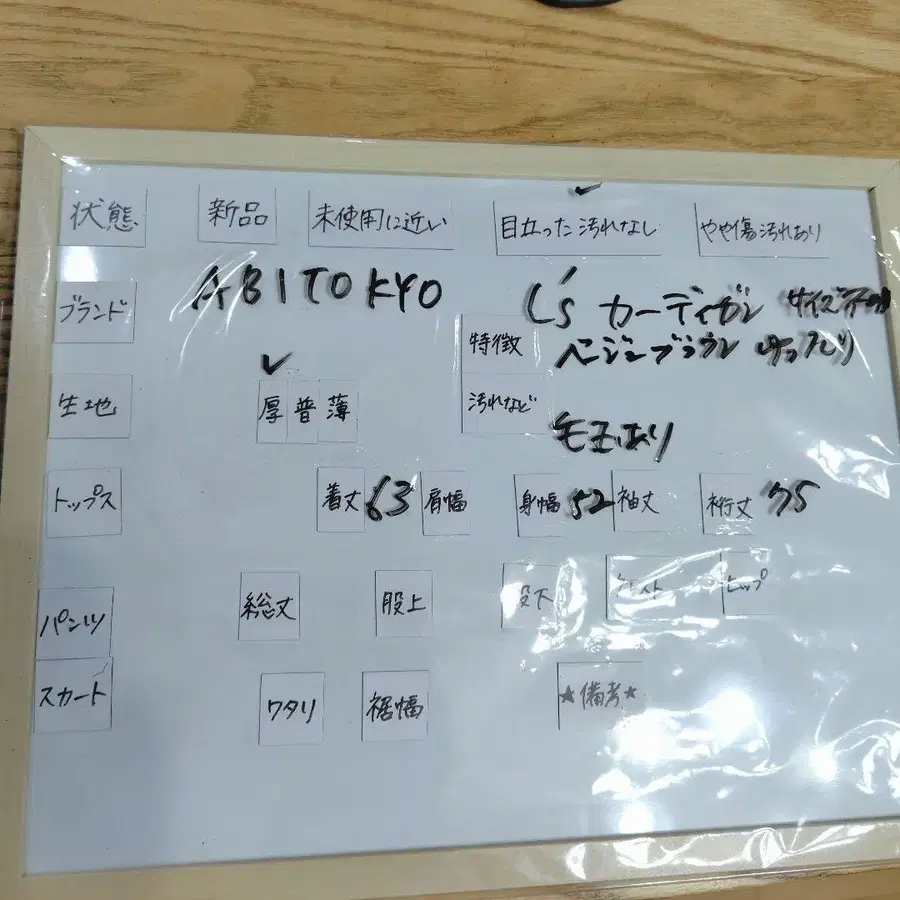 状態 新品 未使用に近い 目立った汚れなし やや傷汚れあり
ブランド ABITOKYO
特徴 L's カーディガン サイズ不明
ベージュブラウン ゆったり
生地 厚 普 薄
汚れなど 毛玉あり
トップス 着丈 63 肩幅 身幅 52 袖丈 裄丈 75
パンツ 総丈 股上 股下 ウエスト ヒップ
スカート ワタリ 裾幅 ★備考★